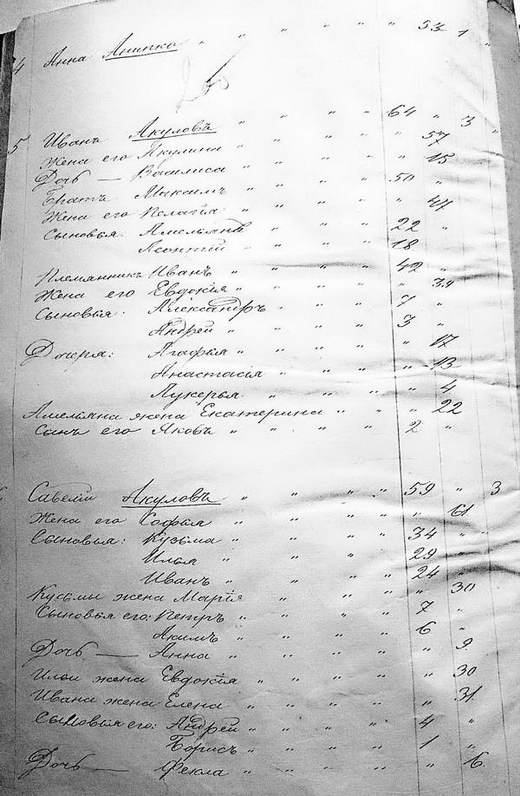 4 Анна Анипко " " " " " 33 1 "
5 Иванъ Акуловъ " " " " 64 " 3
Жена его Акулина " " " " " 57 "
Дочь — Василиса " " " " " 15
Братъ Максимъ " " " " 50 "
Жена его Пелагѣя " " " " " 44
Сыновья: Амельянъ " " " " 22 "
Леонтій " " " " 18 "
Племянникъ Иванъ " " " " 42 "
Жена его Евдокія " " " " " 39
Сыновья: Александръ " " " " 7 "
Андрей " " " " 3 "
Дочеря: Агафья " " " " " 17
Анастасья " " " " " 13
Лукерья " " " " " 4
Амельяна жена Екатерина " " " " 22
Сынъ его Яковъ " " " " 2 "
Савелій Акуловъ " " " " 59 " 3
Жена его Софья " " " " " 61
Сыновья: Кузьма " " " " 34 "
Илья " " " " 29 "
Иванъ " " " " 24 "
Кузьмы жена Марія " " " " " 30
Сыновья его: Петръ " " " " 7 "
Акимъ " " " " 6 "
Дочь — Анна " " " " " 9
Ильи жена Евдокія " " " " " 30
Ивана жена Елена " " " " " 31
Сыновья его: Андрей " " " " 4 "
Борисъ " " " " 1 "
Дочь — Фекла " " " " " 6